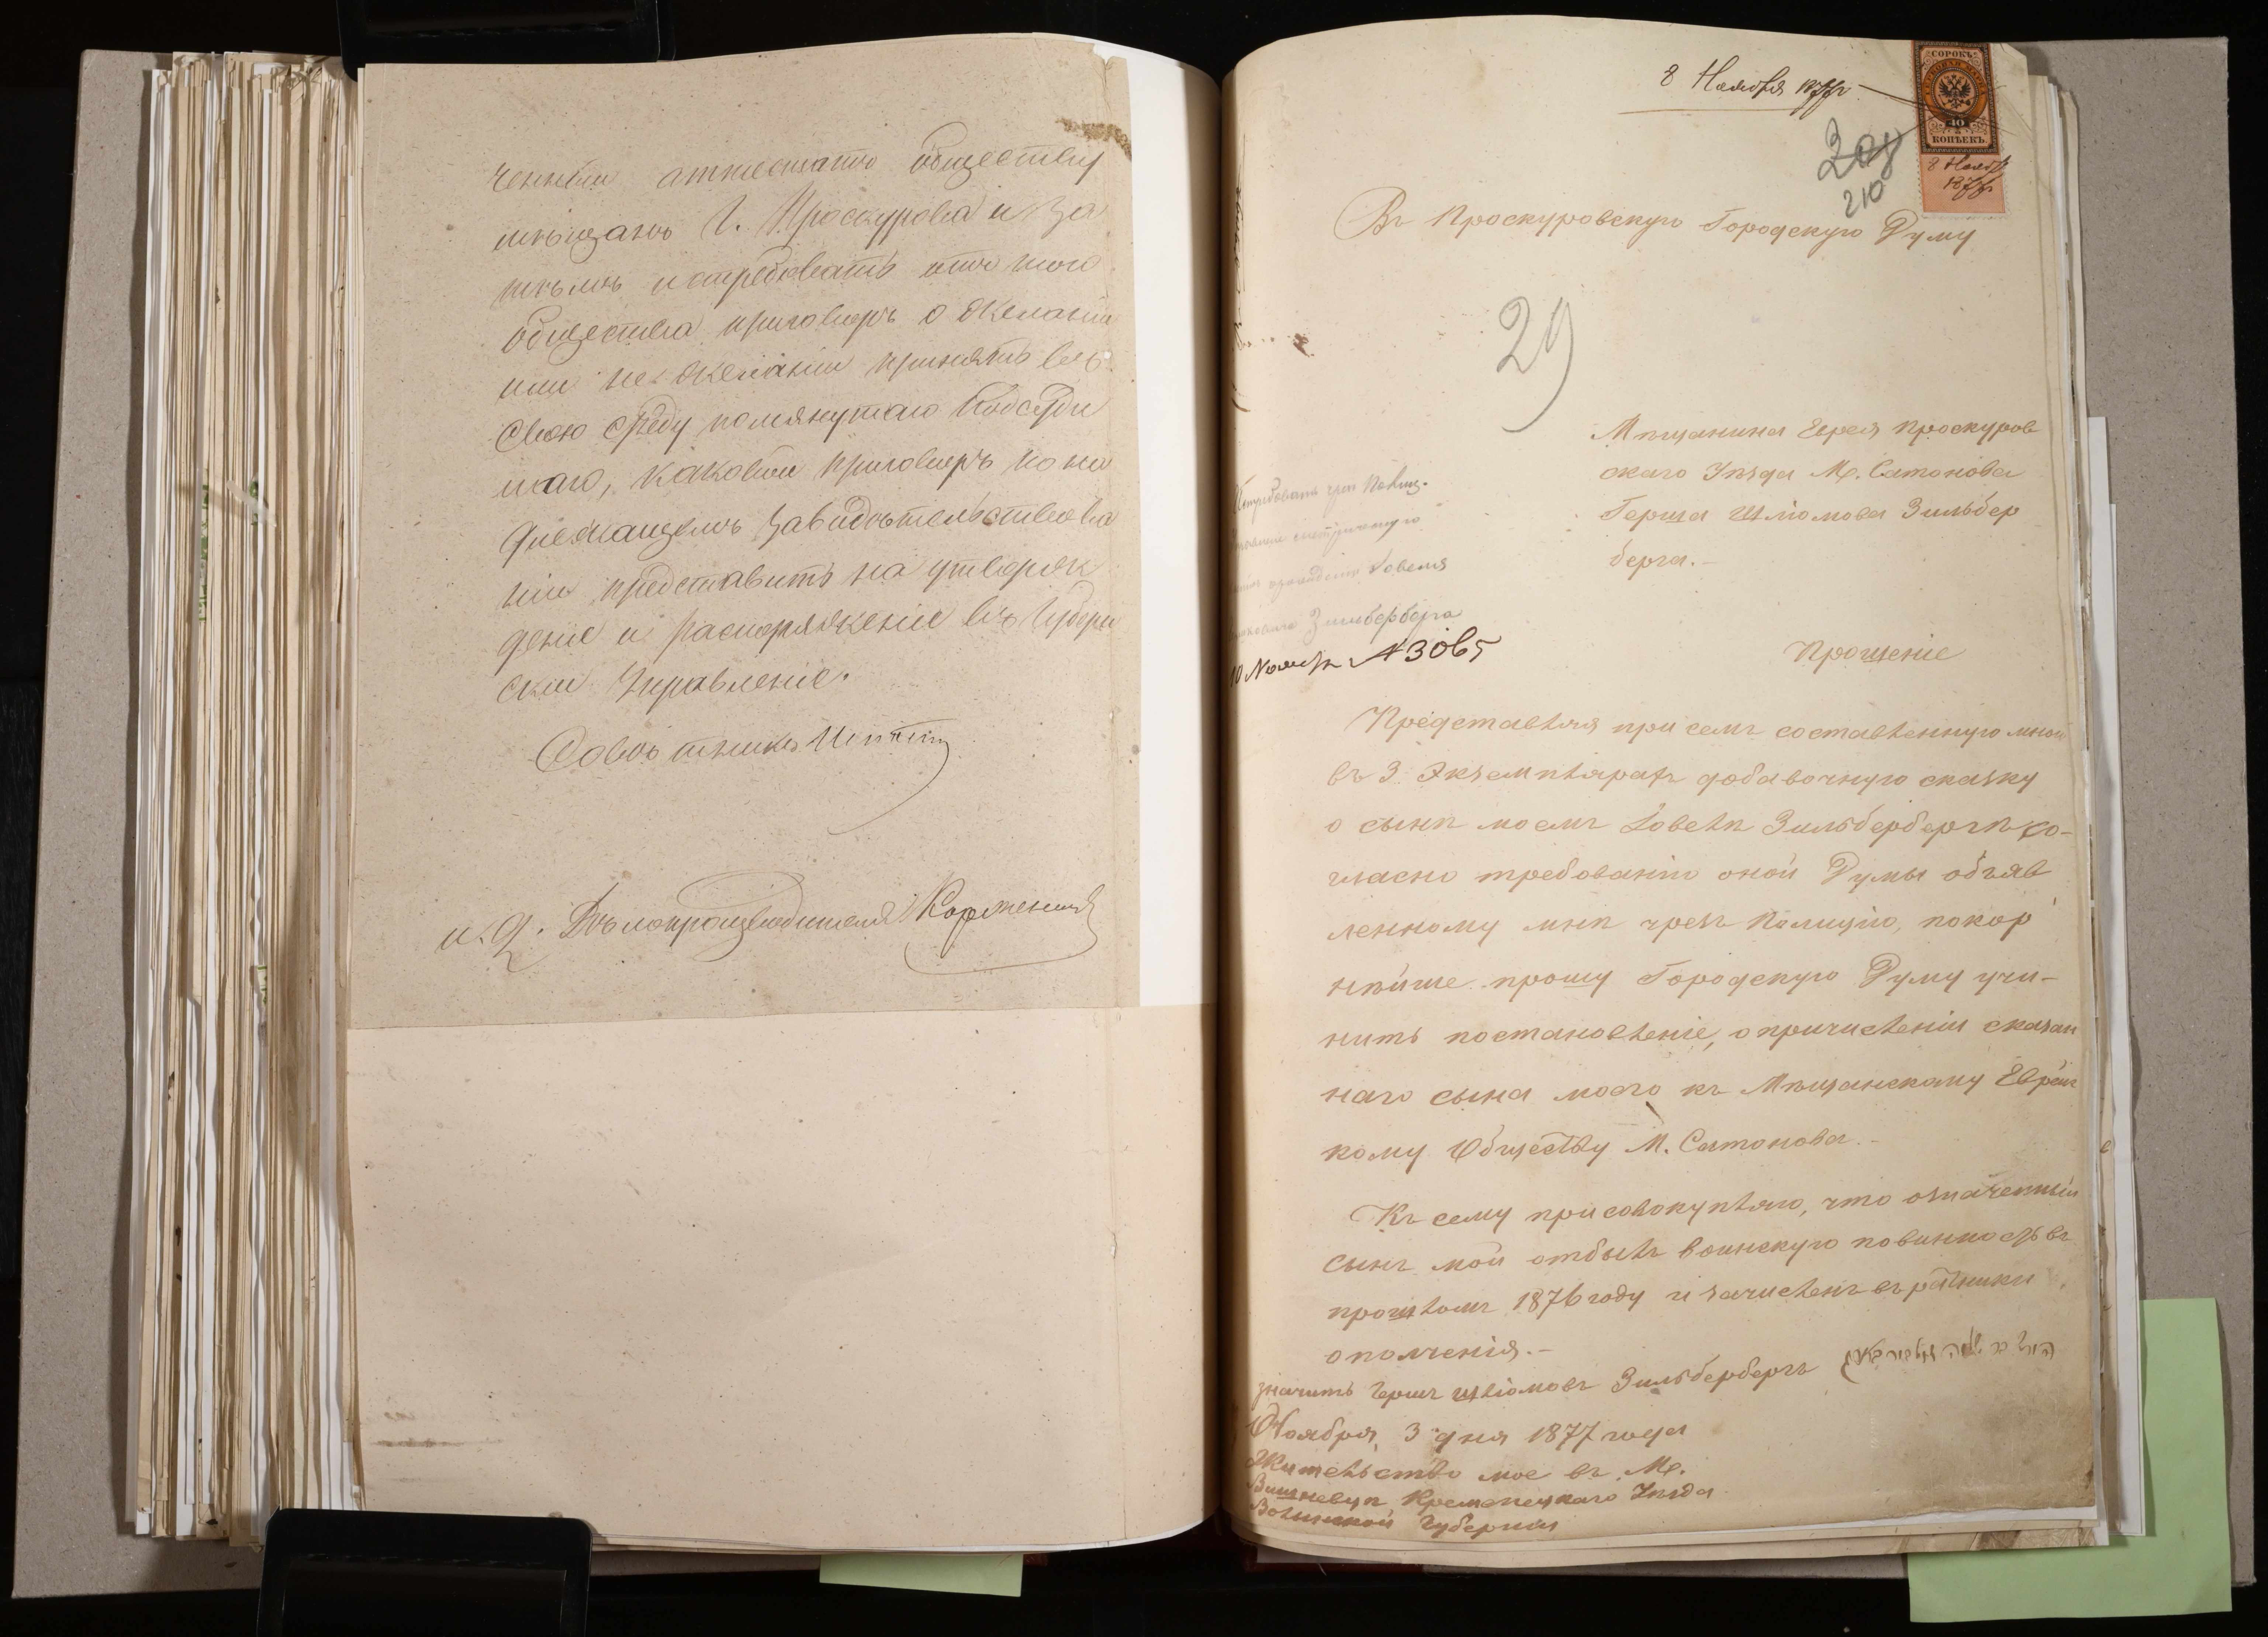 ченный аттестатъ обществу
мѣщанъ Г. Проскурова и за
тѣмъ истребовать отъ того
общества приговоръ о желаніи
или не желаніи принять въ
свою среду помянутаго
каковый приговоръ по на
длежащемъ завидѣтельствова
ніи представить на утверж
деніе и распоряженіе въ Губерн
ское Управленіе.
Совѣтникъ
и. д. Дѣлопроизводителя
8 Ноября 1877 г.
СОРОКЪ
40
КОПѢЕКЪ
8 Ноябр
1877 г
208
210
Въ Проскуровскую Городскую Думу
29
Мѣщанина Еврея Проскуров
скаго Уѣзда М. Сатанова
Герша Шліомова Зильбер
берга.-
Зильберберга
10 Ноября №3065
Прошеніе
Представляя при семъ составленную мною
въ 3 Экземплярахъ добавочную сказку
о сынѣ моемъ Довелѣ Зильбербергѣ со-
гласно требованію оной Думы объяв
ленному мнѣ чрезъ Полицію, покор
нѣйше прошу Городскую Думу учи-
нить постановленіе, о причисленіи сказан
наго сына моего къ Мѣщанскому Еврейс
кому Обществу М. Сатанова.-
Къ сему присовокупляю, что означенный
сынъ мой отбылъ воинскую повинность въ
прошломъ 1876 году и зачисленъ въ ратники
ополченія.-
значитъ Гершъ Шліомовъ Зильбербергъ
Ноября 3 дня 1877 года
Жительство мое въ М.
Вишневцѣ Кременецкаго Уѣзда
Волынской Губерніи